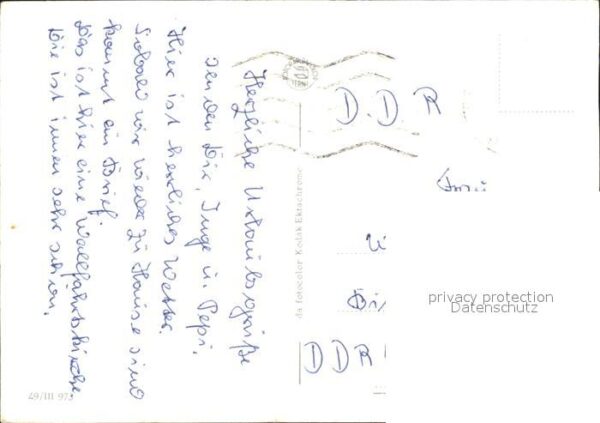 Herzliche Urlaubsgrüße
senden Dir, Inge u. Pepi.
Hier ist herrliches Wetter.
Sobald wir wieder zu Hause sind
kommt ein Brief.
Das ist hier eine Wallfahrtskirche
Die ist innen sehr schön.
D.D.R
DDR
da fotocolor Kodak Ektachrome
49/III 973
privacy protection
Datenschutz